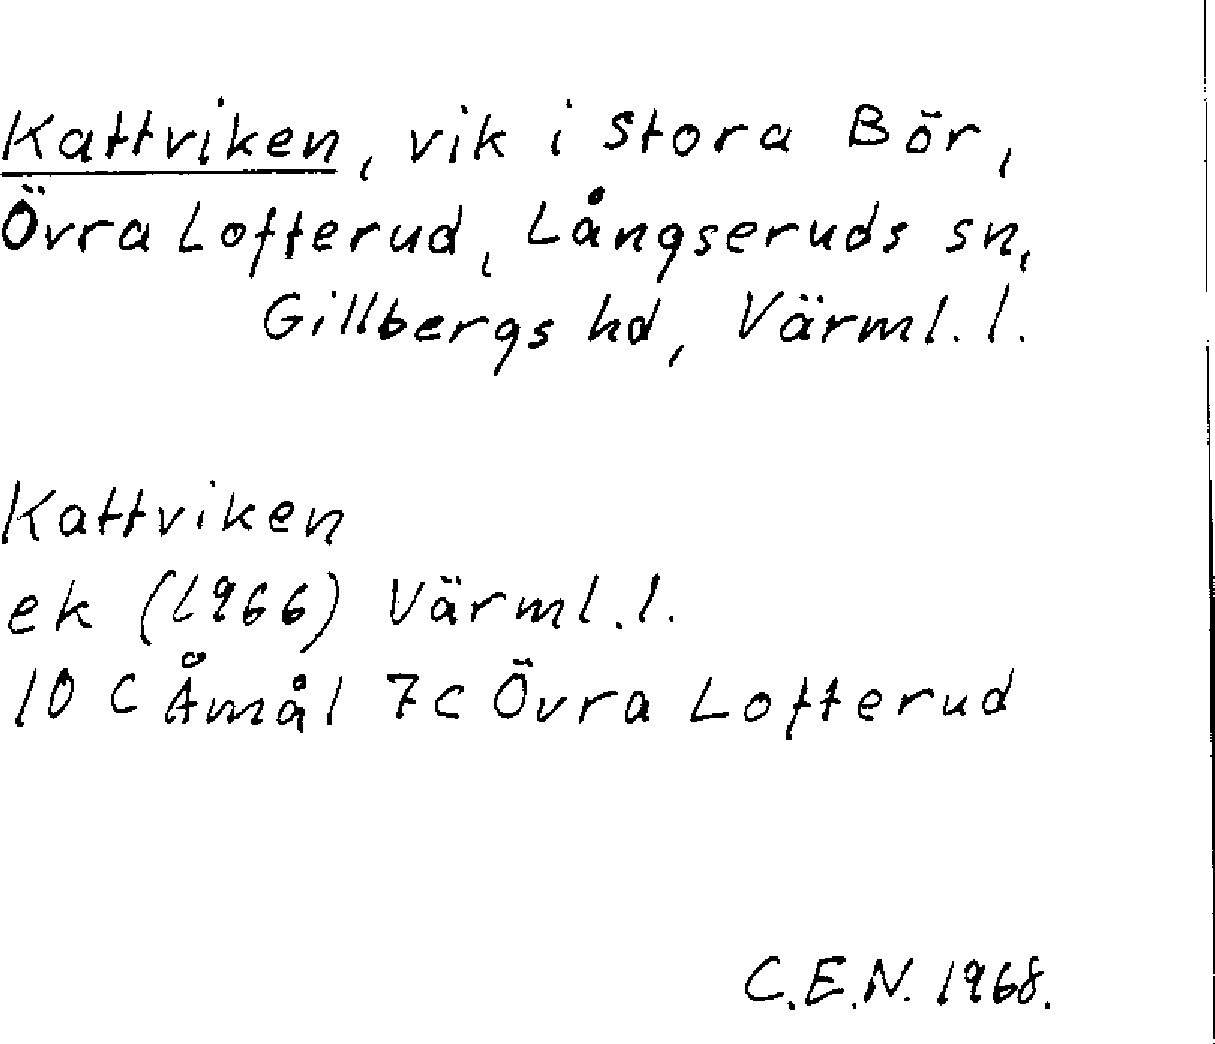 Kattviken, vik i Stora Bör,
Övra Lofterud, Långseruds sn,
Gillbergs hd, Värml. l.
Kattviken
ek (1966) Värml. l.
10 C Åmål 7c Övra Lofterud
C.E.N. 1968.